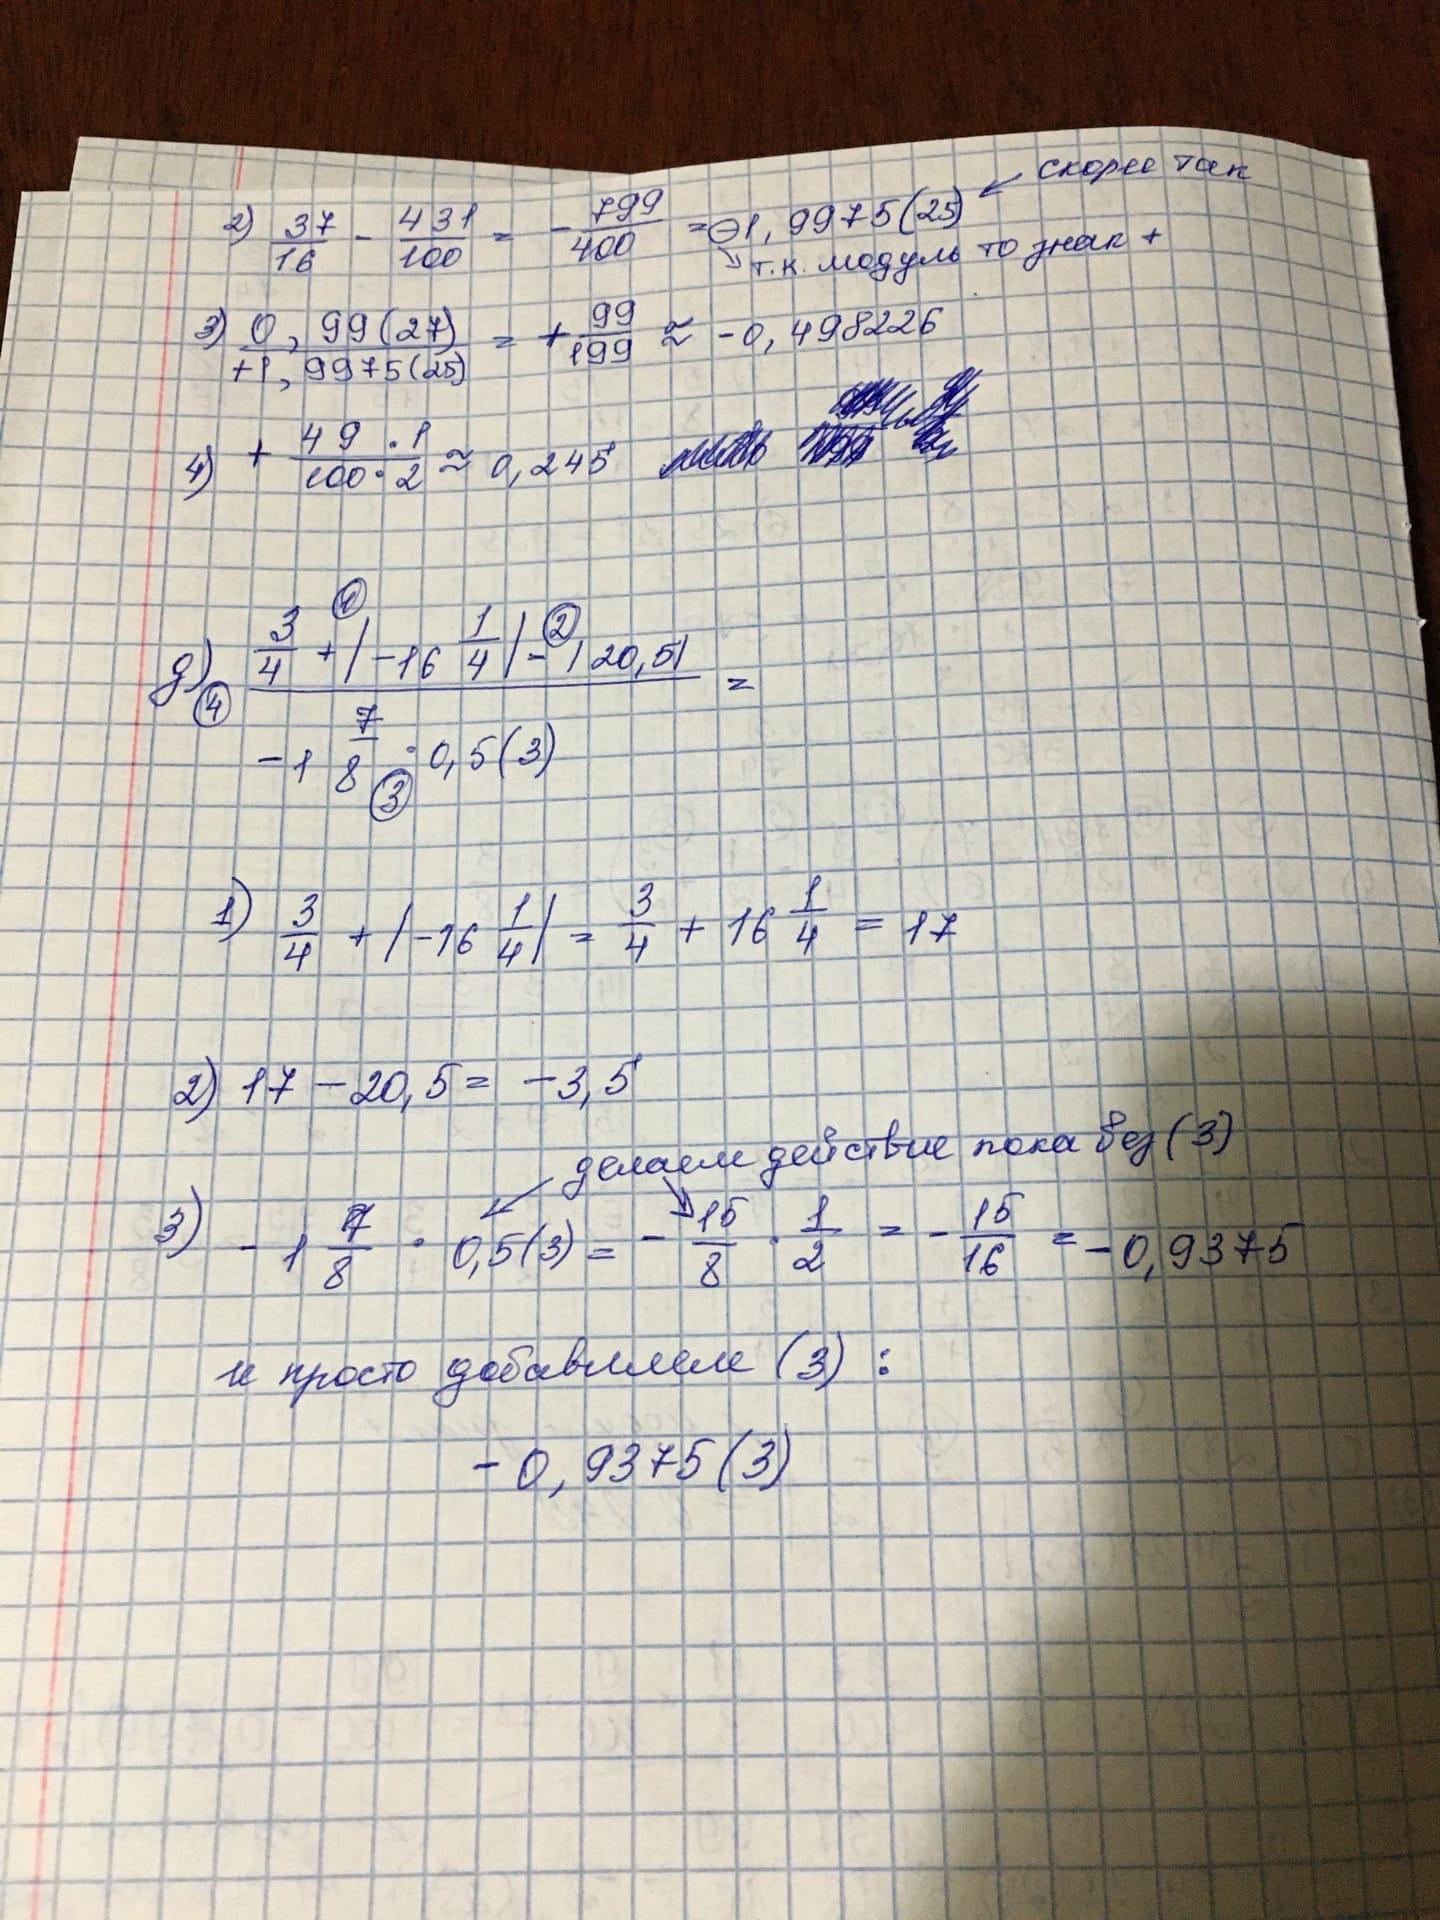 скорее так
2) 37/16 - 431/100 = - 799/400 = -1,9975(25)
т.к. модуль то знак +
3) 0,99(27)/+1,9975(25) = + 99/199 ≈ -0,498226
4) + 49·1/100·2 ≈ 0,245
g) (3/4 + |-16 1/4| - |20,5|)/(-1 7/8 · 0,5(3)) =
1) 3/4 + |-16 1/4| = 3/4 + 16 1/4 = 17
2) 17 - 20,5 = -3,5
делаем действие пока без (3)
3) -1 7/8 · 0,5(3) = - 15/8 · 1/2 = - 15/16 = -0,9375
и просто добавляем (3) :
-0,9375(3)